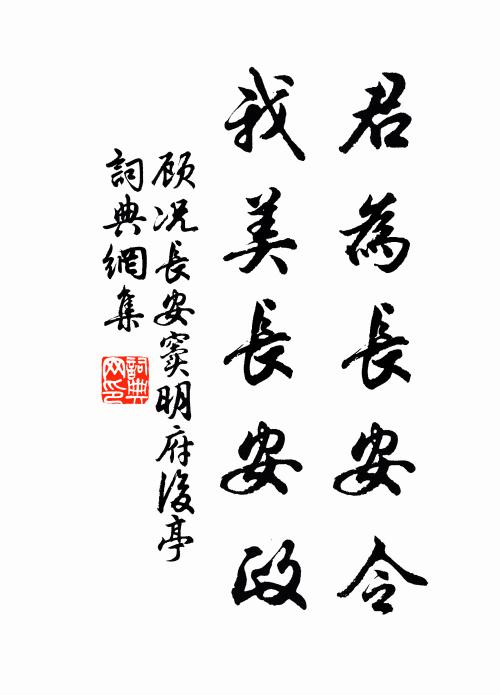 君為長安令
我美長安政
顾況長安竇明府後亭
詞典網集
詞典網印